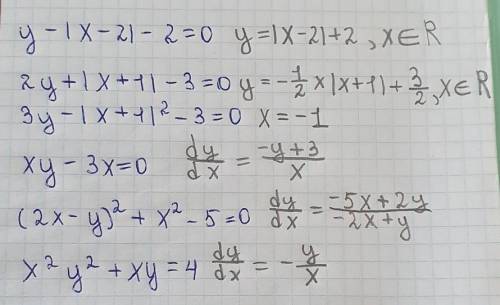 y - |x - 2| - 2 = 0  y = |x - 2| + 2, x ∈ R
2y + |x + 1| - 3 = 0  y = -1/2 x |x + 1| + 3/2, x ∈ R
3y - |x + 1|² - 3 = 0  x = -1
xy - 3x = 0  dy/dx = (-y + 3)/x
(2x - y)² + x² - 5 = 0  dy/dx = (-5x + 2y)/(-2x + y)
x² y² + xy = 4  dy/dx = -y/x